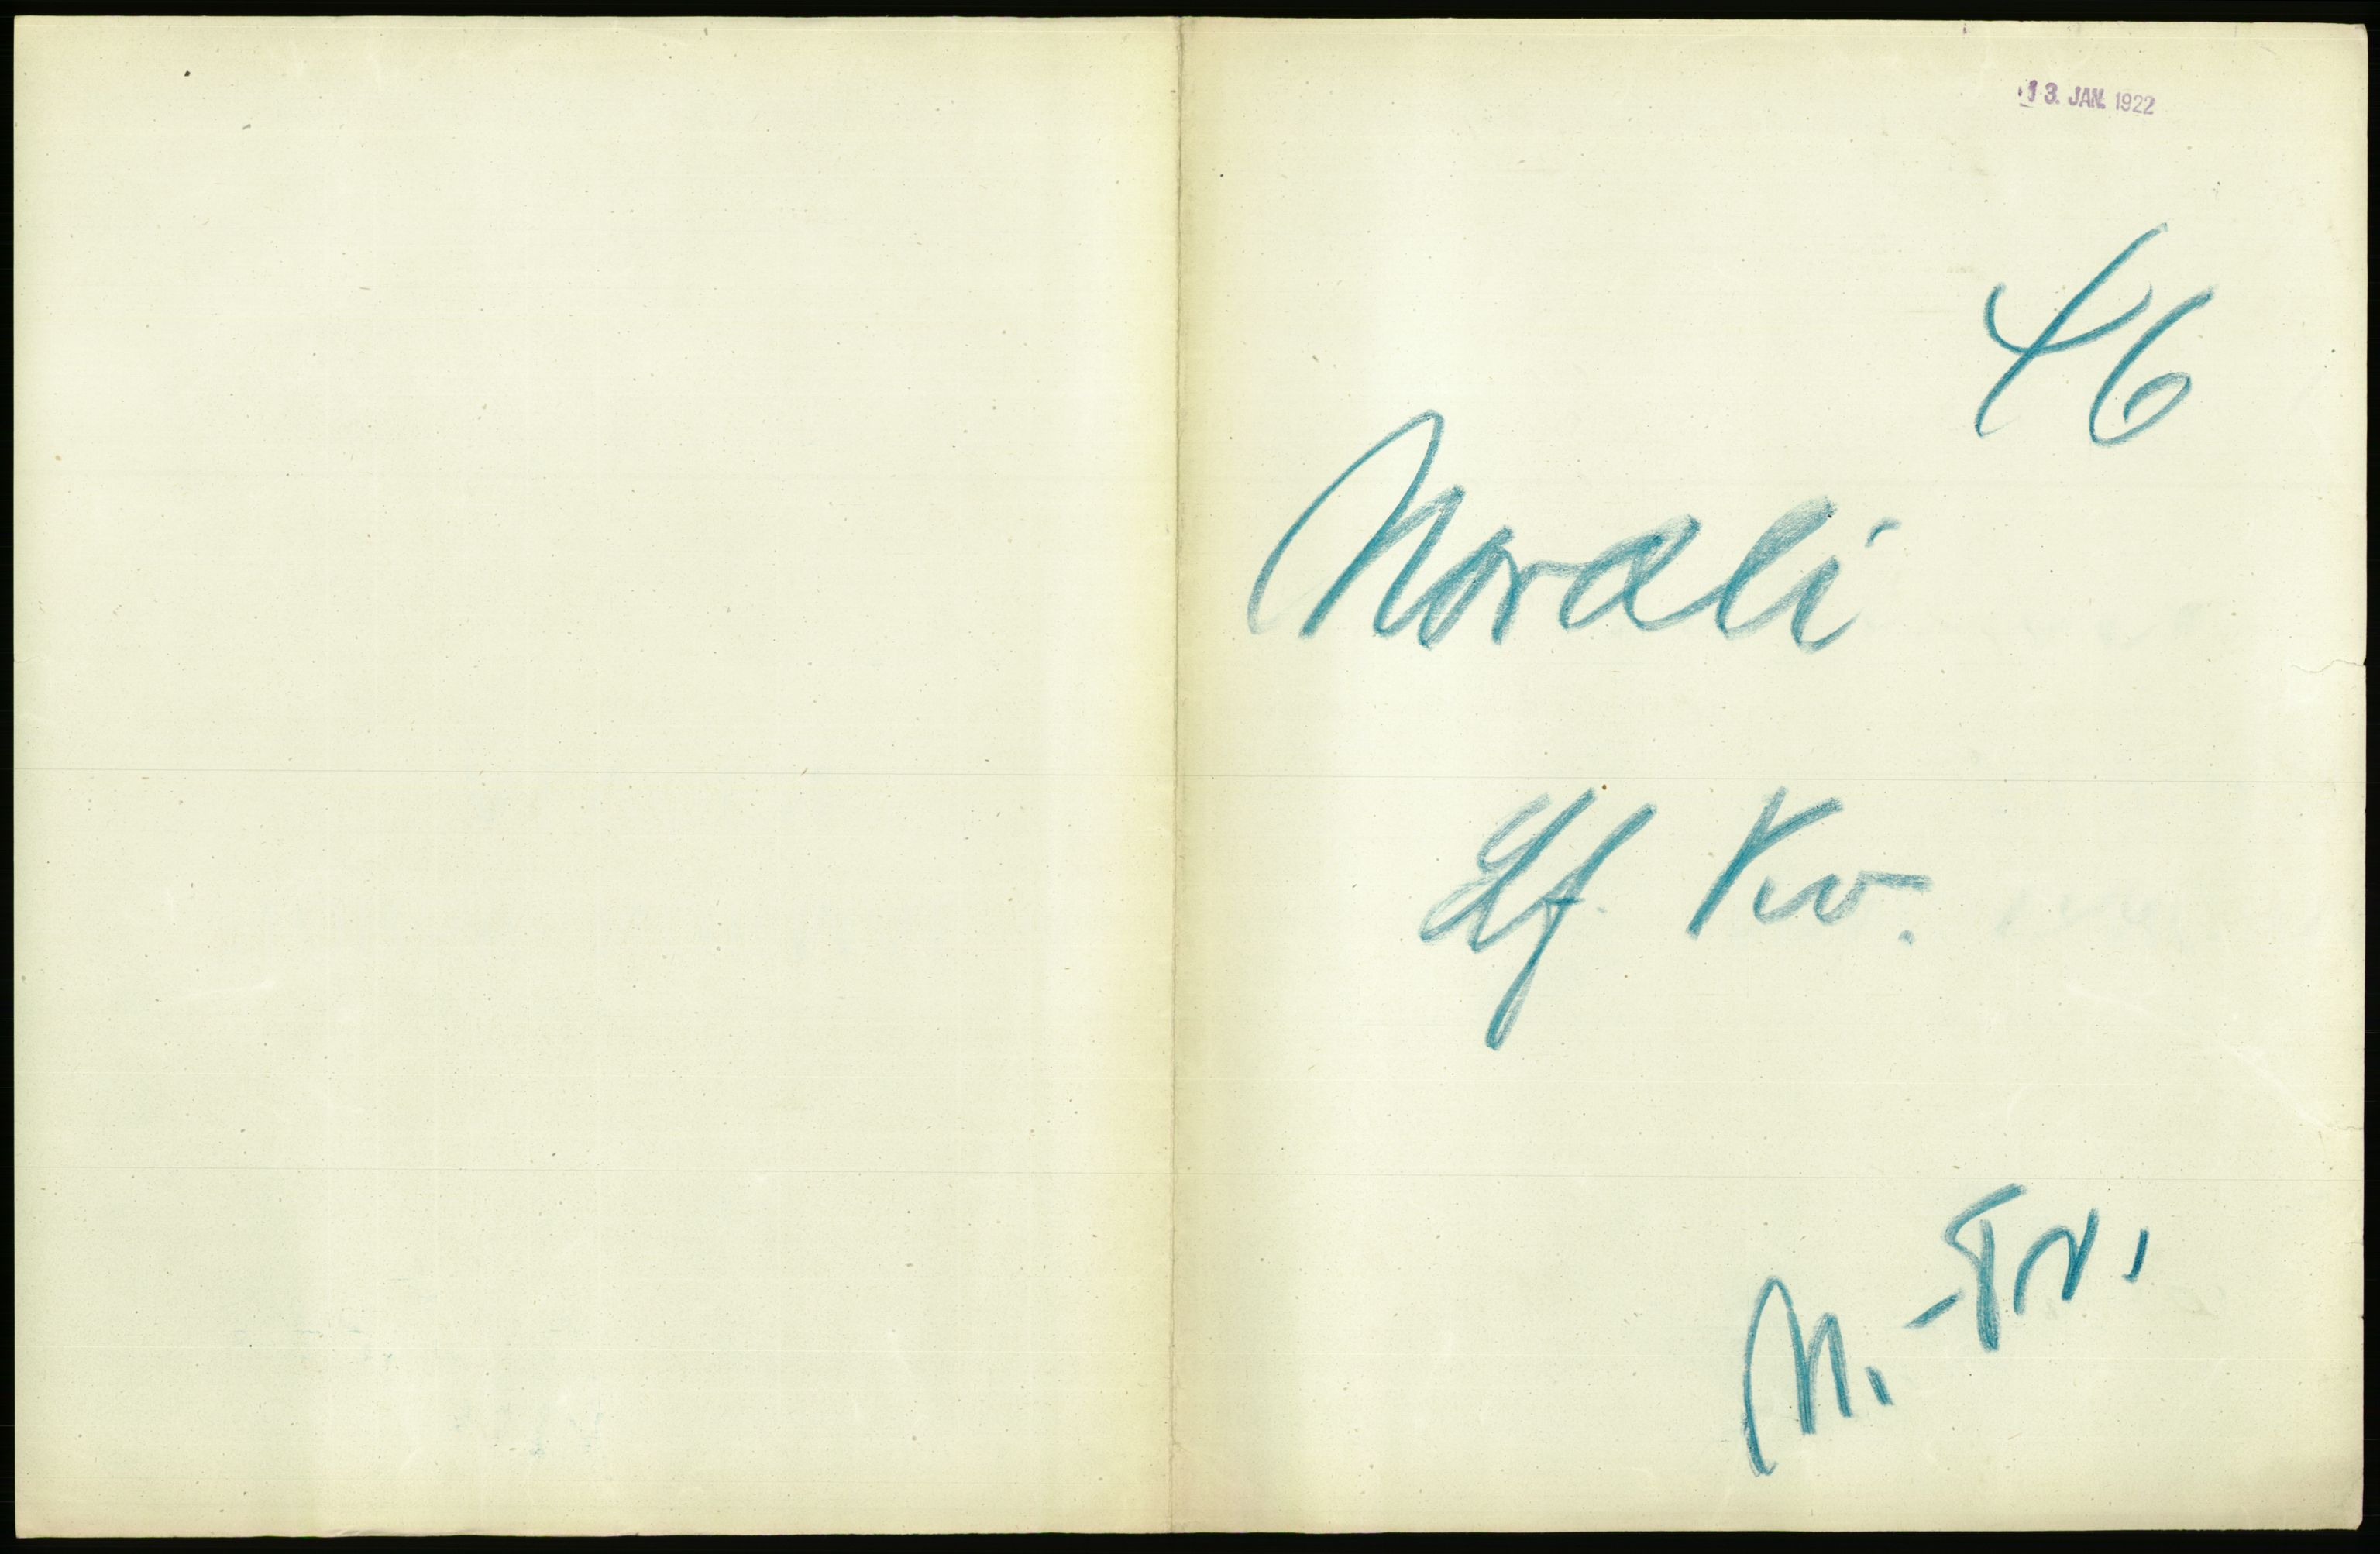 13. JAN. 1922
46
Nordli
Lf. Kv.
N. - Tr.